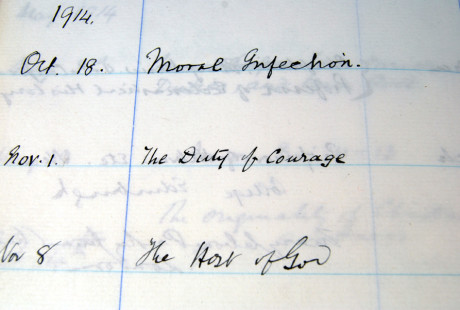 1914.
Oct. 18. Moral Infection.
Nov. 1. The Duty of Courage
Nov 8 The Host of God